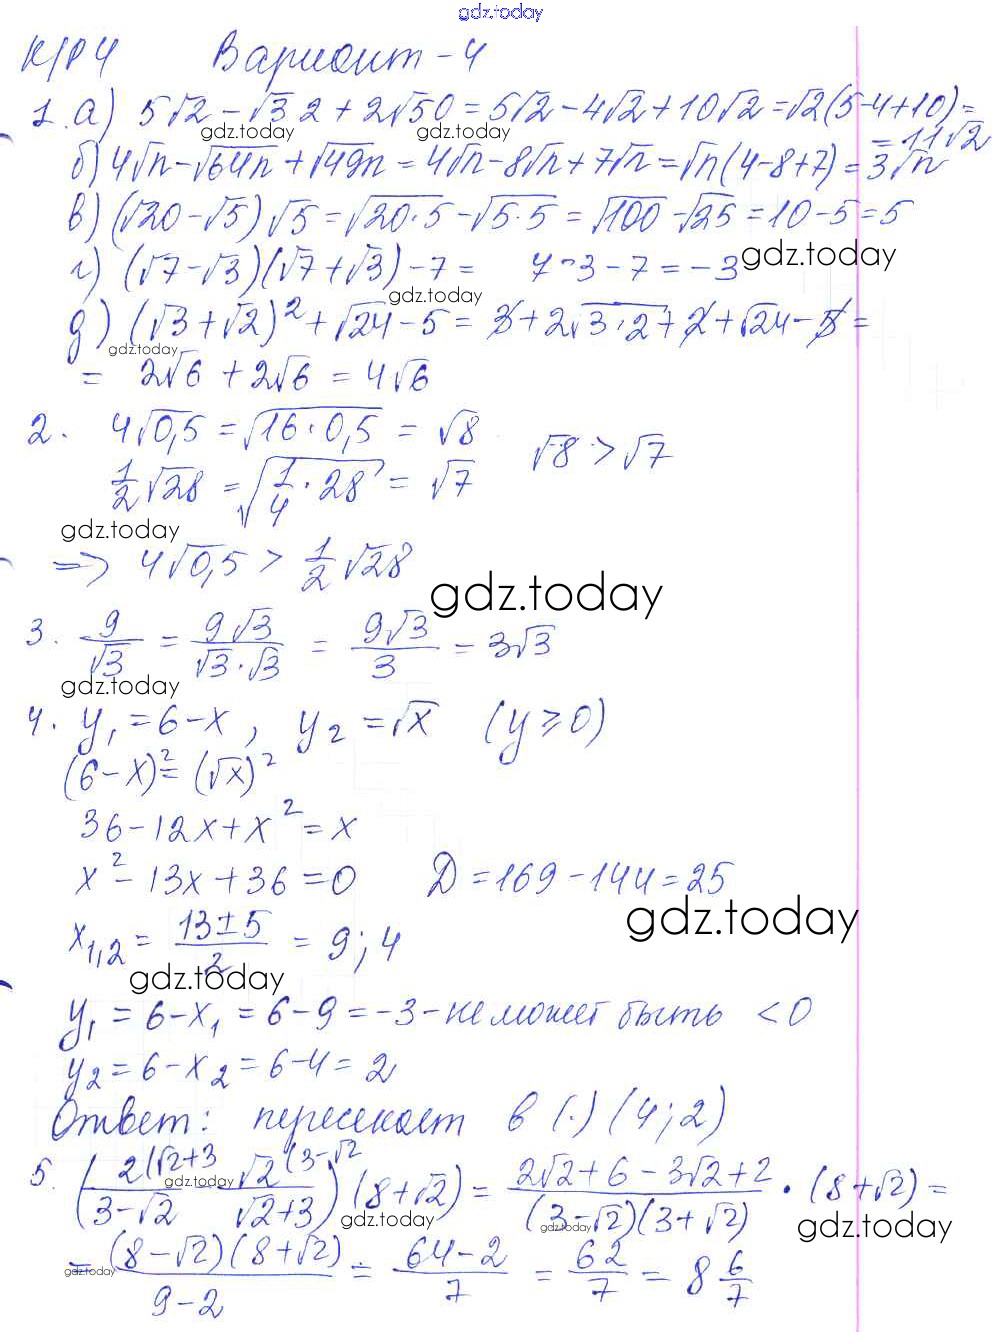 gdz.today
К/Р 4 Вариант - 4
1. а) 5√2 - √32 + 2√50 = 5√2 - 4√2 + 10√2 = √2(5-4+10) =
= 11√2
gdz.today gdz.today
б) 4√n - √64n + √49n = 4√n - 8√n + 7√n = √n(4-8+7) = 3√n
в) (√20 - √5)√5 = √20·5 - √5·5 = √100 - √25 = 10 - 5 = 5
г) (√7 - √3)(√7 + √3) - 7 = 7 - 3 - 7 = -3 gdz.today
gdz.today
д) (√3 + √2)² + √24 - 5 = 3 + 2√3·2 + 2 + √24 - 5 =
gdz.today
= 2√6 + 2√6 = 4√6
2. 4√0,5 = √16·0,5 = √8 √8 > √7
1/2 √28 = √1/4·28 = √7
gdz.today
=> 4√0,5 > 1/2 √28
gdz.today
3. 9/√3 = 9√3/√3·√3 = 9√3/3 = 3√3
gdz.today
4. y₁ = 6 - x, y₂ = √x (y ≥ 0)
(6 - x)² = (√x)²
36 - 12x + x² = x
x² - 13x + 36 = 0 D = 169 - 144 = 25
gdz.today
x₁,₂ = 13±5/2 = 9; 4
gdz.today
y₁ = 6 - x₁ = 6 - 9 = -3 - не может быть < 0
y₂ = 6 - x₂ = 6 - 4 = 2
Ответ: пересекает в (·) (4; 2)
5. (2(√2+3/3-√2 - √2(3-√2/√2+3)(8+√2) = 2√2+6-3√2+2/(3-√2)(3+√2) · (8+√2) =
gdz.today gdz.today gdz.today gdz.today
= (8-√2)(8+√2)/9-2 = 64-2/7 = 62/7 = 8 6/7
gdz.today